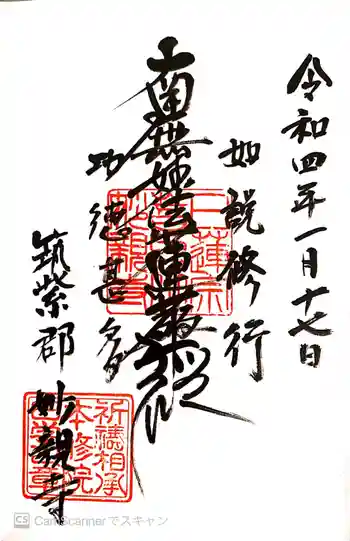 令和四年一月十七日
如説修行
南無妙法蓮華経
功徳甚多
筑紫郡
妙観寺
日蓮宗
妙観寺
祈祷相承
CS CamScannerでスキャン